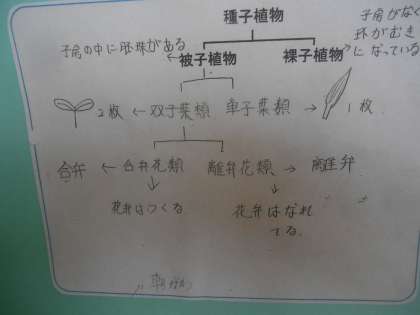 種子植物
子房がなく
子房の中に胚珠がある
胚がむき
になっている
被子植物
裸子植物
2枚 ← 双子葉類
単子葉類 → 1枚
合弁 ← 合弁花類
離弁花類 → 離弁
花弁はつくる
花弁はなれ
てる